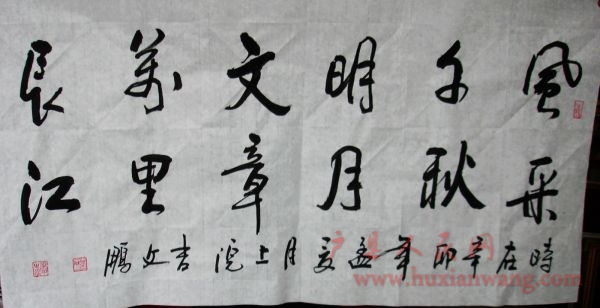 風采
千秋
明月
文章
萬里
長江
時在辛卯年孟夏月上浣吉鵬
www.huxianwang.com